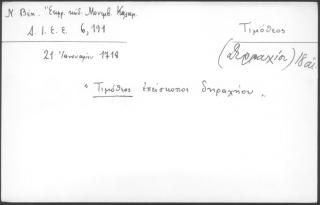 Ν. Βέη. "Εκφρ. κώδ. Μονεμβ. Καλαμ.
Δ. Ι. Ε. Ε. 6, 191
Τιμόθεος
(Δυρραχίου) 18 αἰ.
21 Ἰανουαρίου 1718
" Τιμόθεος ἐπίσκοπος Δυραχήου "